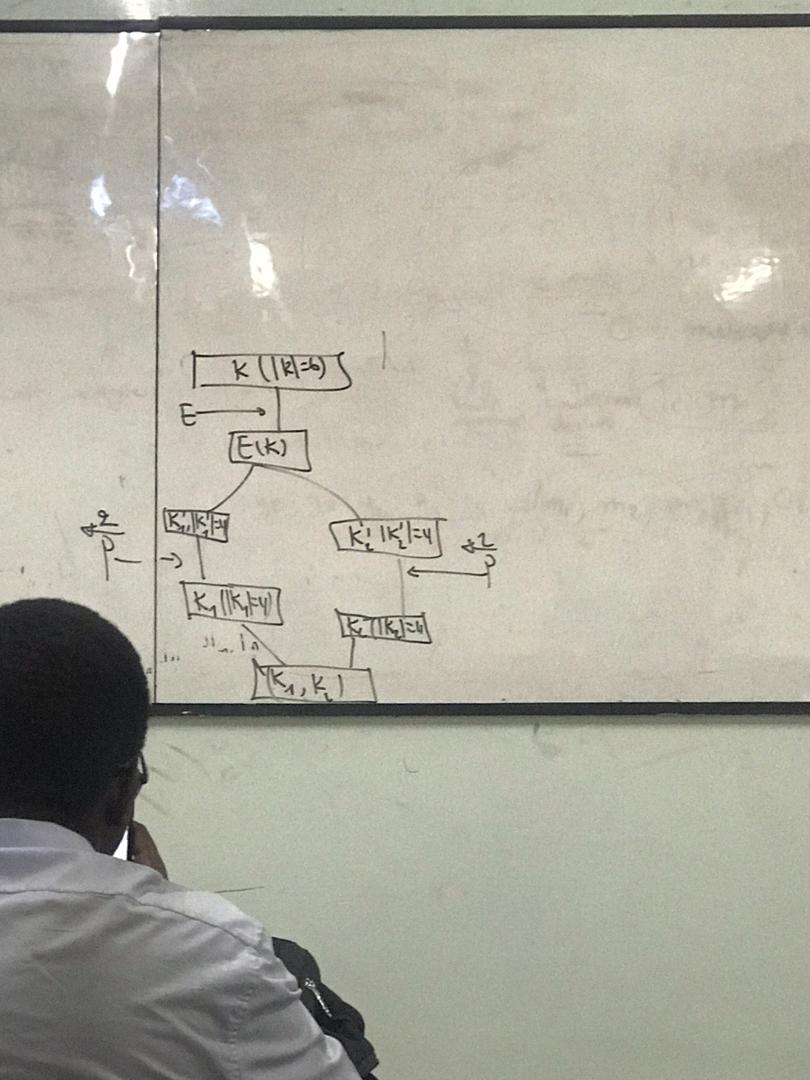 K (|K|=6)
E
E(K)
K'₁, |K'₁|=4
K'₂, |K'₂|=4
2
P
2
P
K₁ (|K₁|=4)
K₂ (|K₂|=4)
(K₁, K₂)